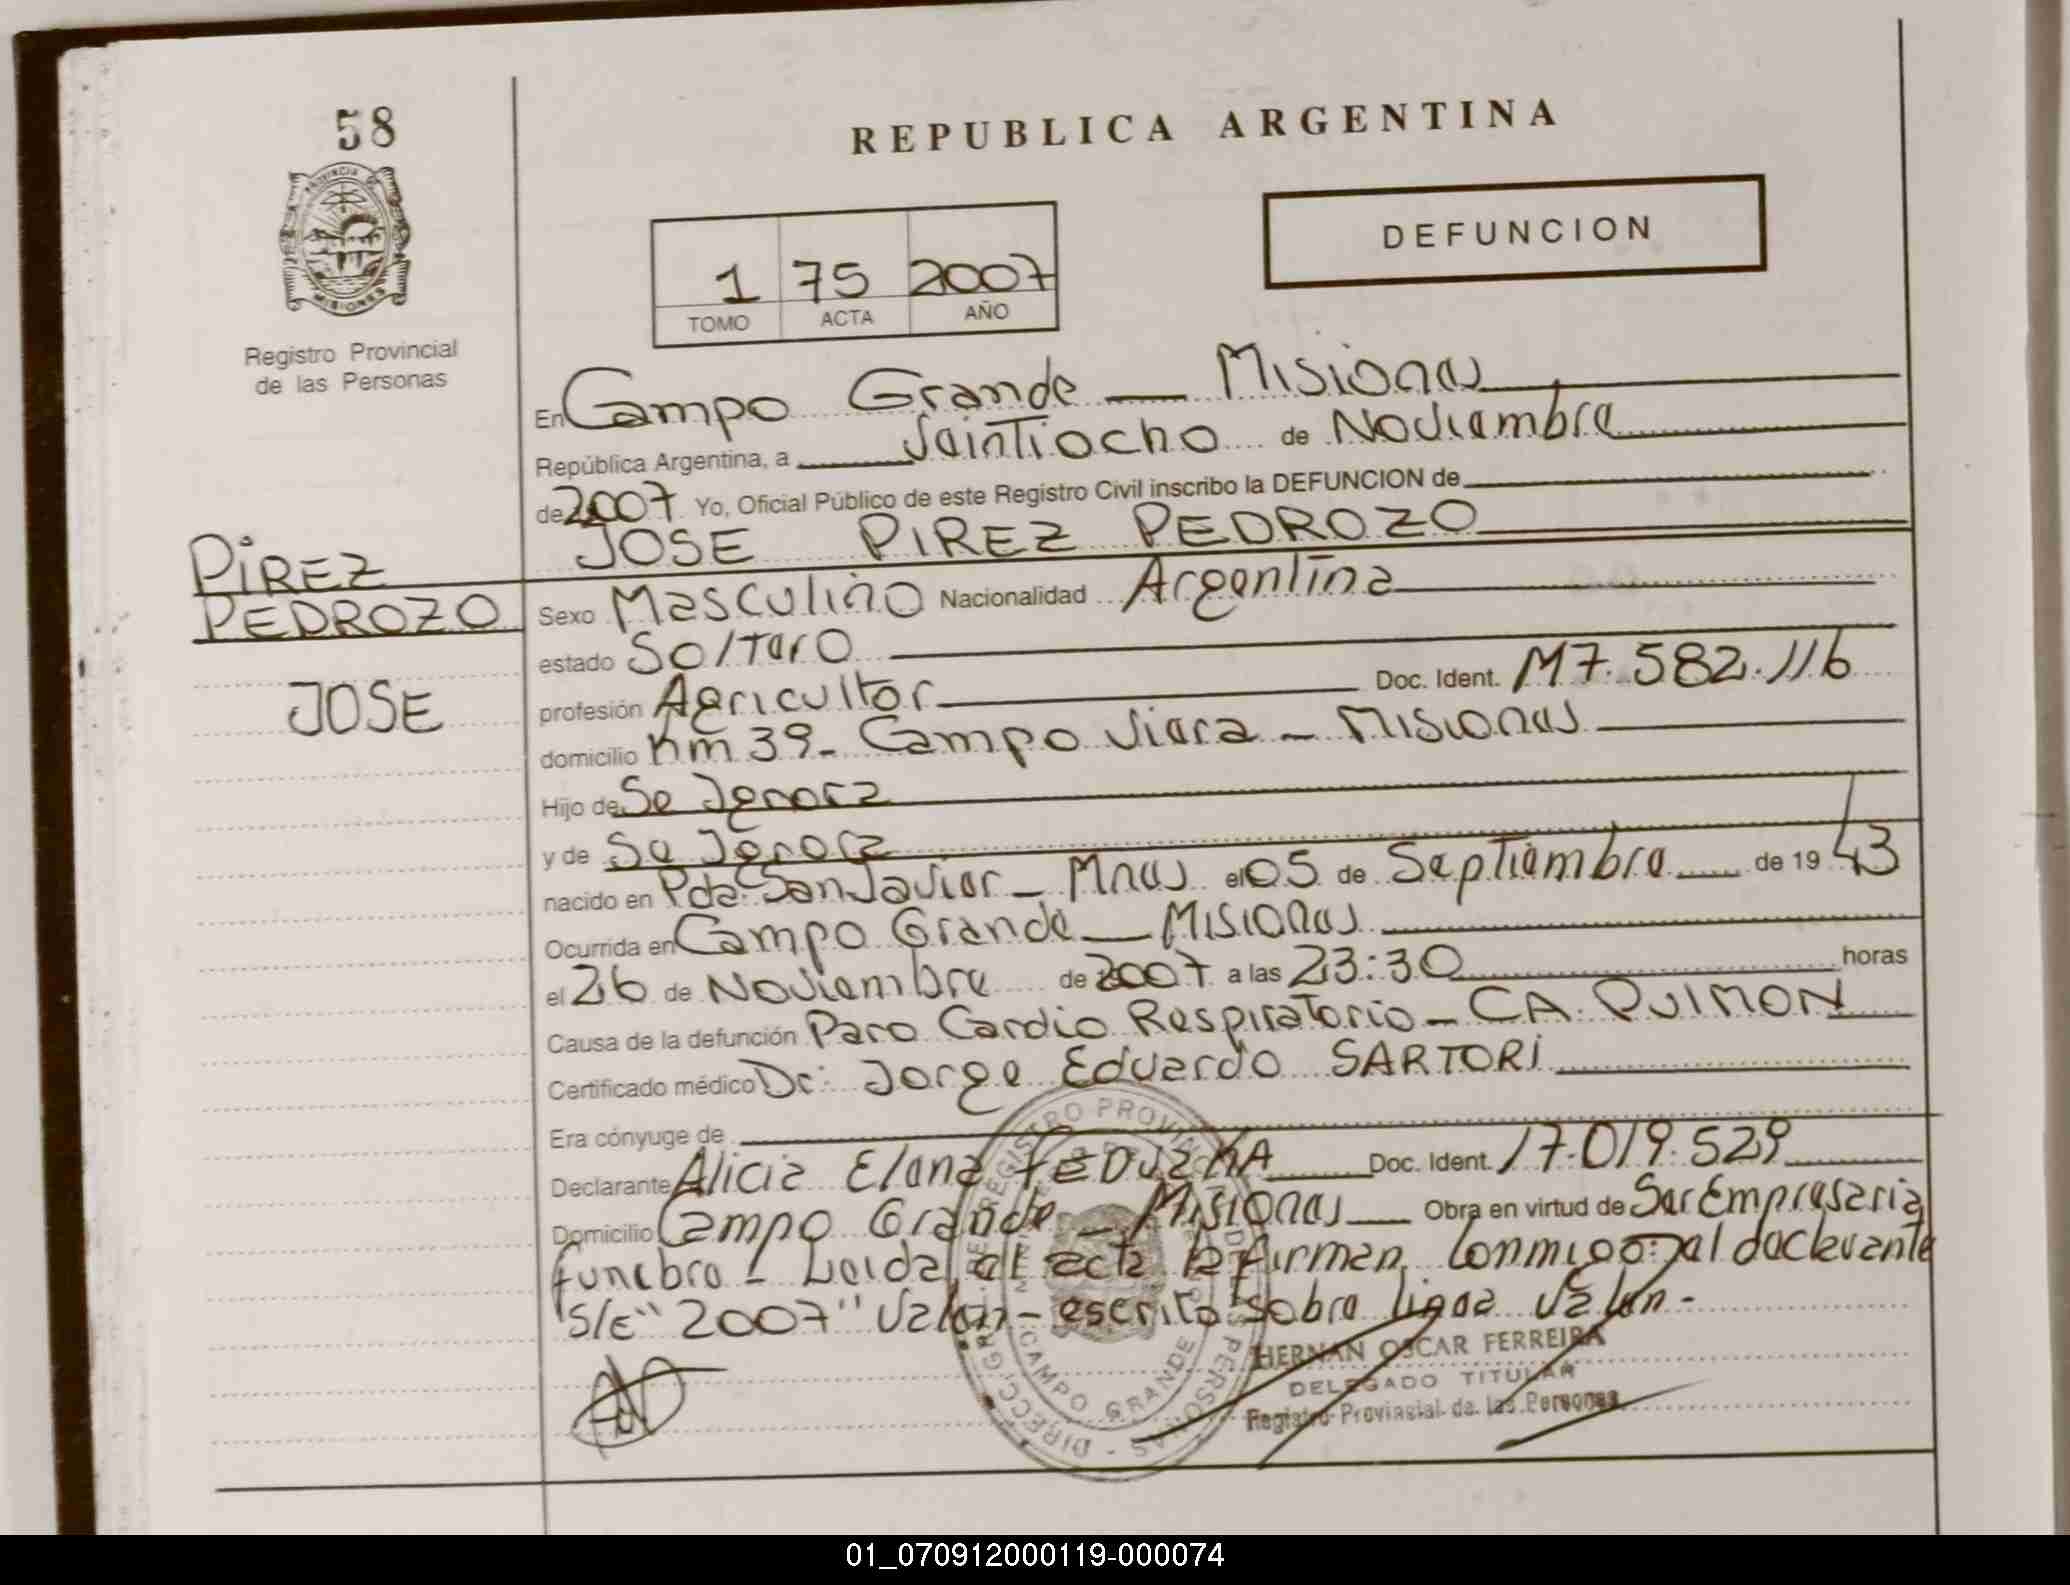 58
PROVINCIA DE
MISIONES
Registro Provincial
de las Personas
REPUBLICA ARGENTINA
DEFUNCION
1 75 2007
TOMO ACTA AÑO
En Campo Grande - Misiones
República Argentina, a Veintiocho de Noviembre
de 2007 Yo, Oficial Público de este Registro Civil inscribo la DEFUNCION de
JOSE PIREZ PEDROZO
PIREZ
PEDROZO
JOSE
Sexo Masculino Nacionalidad Argentina
estado Soltero
profesión Agricultor Doc. Ident. M7.582.116
domicilio Km 39 - Campo Viera - Misiones
Hijo de Se Ignora
y de Se Ignora
nacido en Pda. San Javier - Mnes el 05 de Septiembre de 19 43
Ocurrida en Campo Grande - Misiones
el 26 de Noviembre de 2007 a las 23:30 horas
Causa de la defunción Paro Cardio Respiratorio - CA. PULMON
Certificado médico Dr: Jorge Eduardo SARTORI
Era cónyuge de
Declarante Alicia Elena Doc. Ident. 17.019.529
Domicilio Campo Grande - Misiones Obra en virtud de Ser Empresaria
funebre - Leida el acta la firman conmigo: el declarante
S/E "2007" Valen - escrito sobre linea valen -
HERNAN OSCAR FERREIRA
DELEGADO TITULAR
Registro Provincial de las Personas
CAMPO GRANDE
01_070912000119-000074